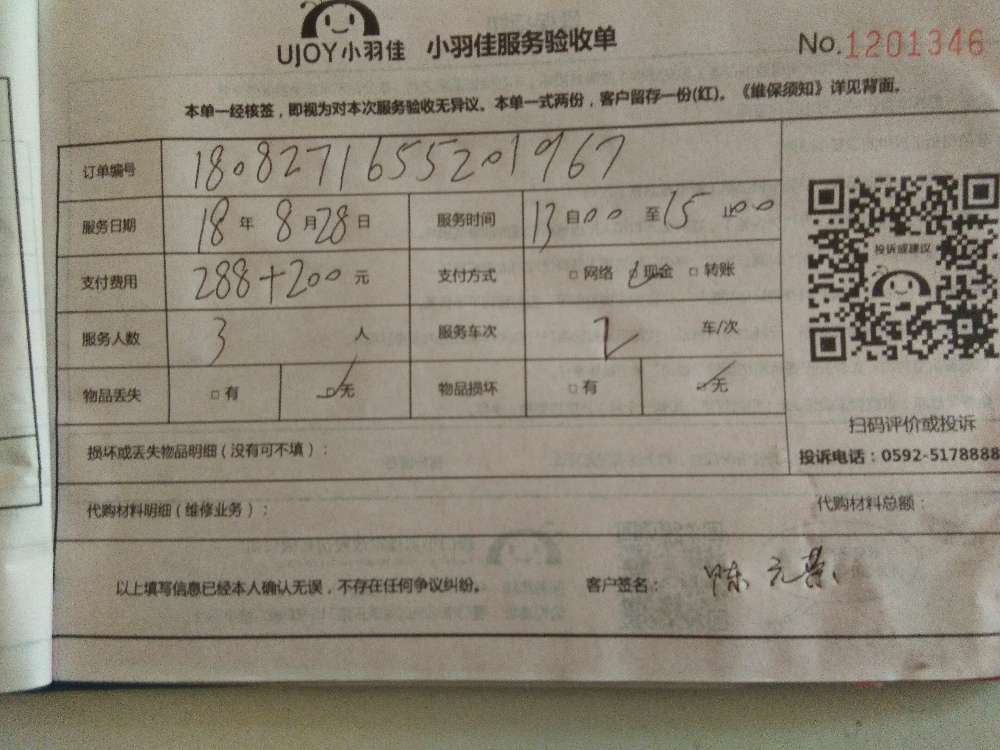 UJOY小羽佳 小羽佳服务验收单 No.1201346
本单一经核签，即视为对本次服务验收无异议。本单一式两份，客户留存一份(红)。《维保须知》详见背面。
订单编号 1808271655201967
服务日期 18年8月28日 服务时间 13自00至15止00
支付费用 288+200元 支付方式 □网络 ☑现金 □转账
投诉或建议
服务人数 3人 服务车次 2车/次
物品丢失 □有 ☑无 物品损坏 □有 ☑无
扫码评价或投诉
损坏或丢失物品明细（没有可不填）： 投诉电话：0592-5178888
代购材料明细（维修业务）： 代购材料总额：
以上填写信息已经本人确认无误，不存在任何争议纠纷。 客户签名： 陈元